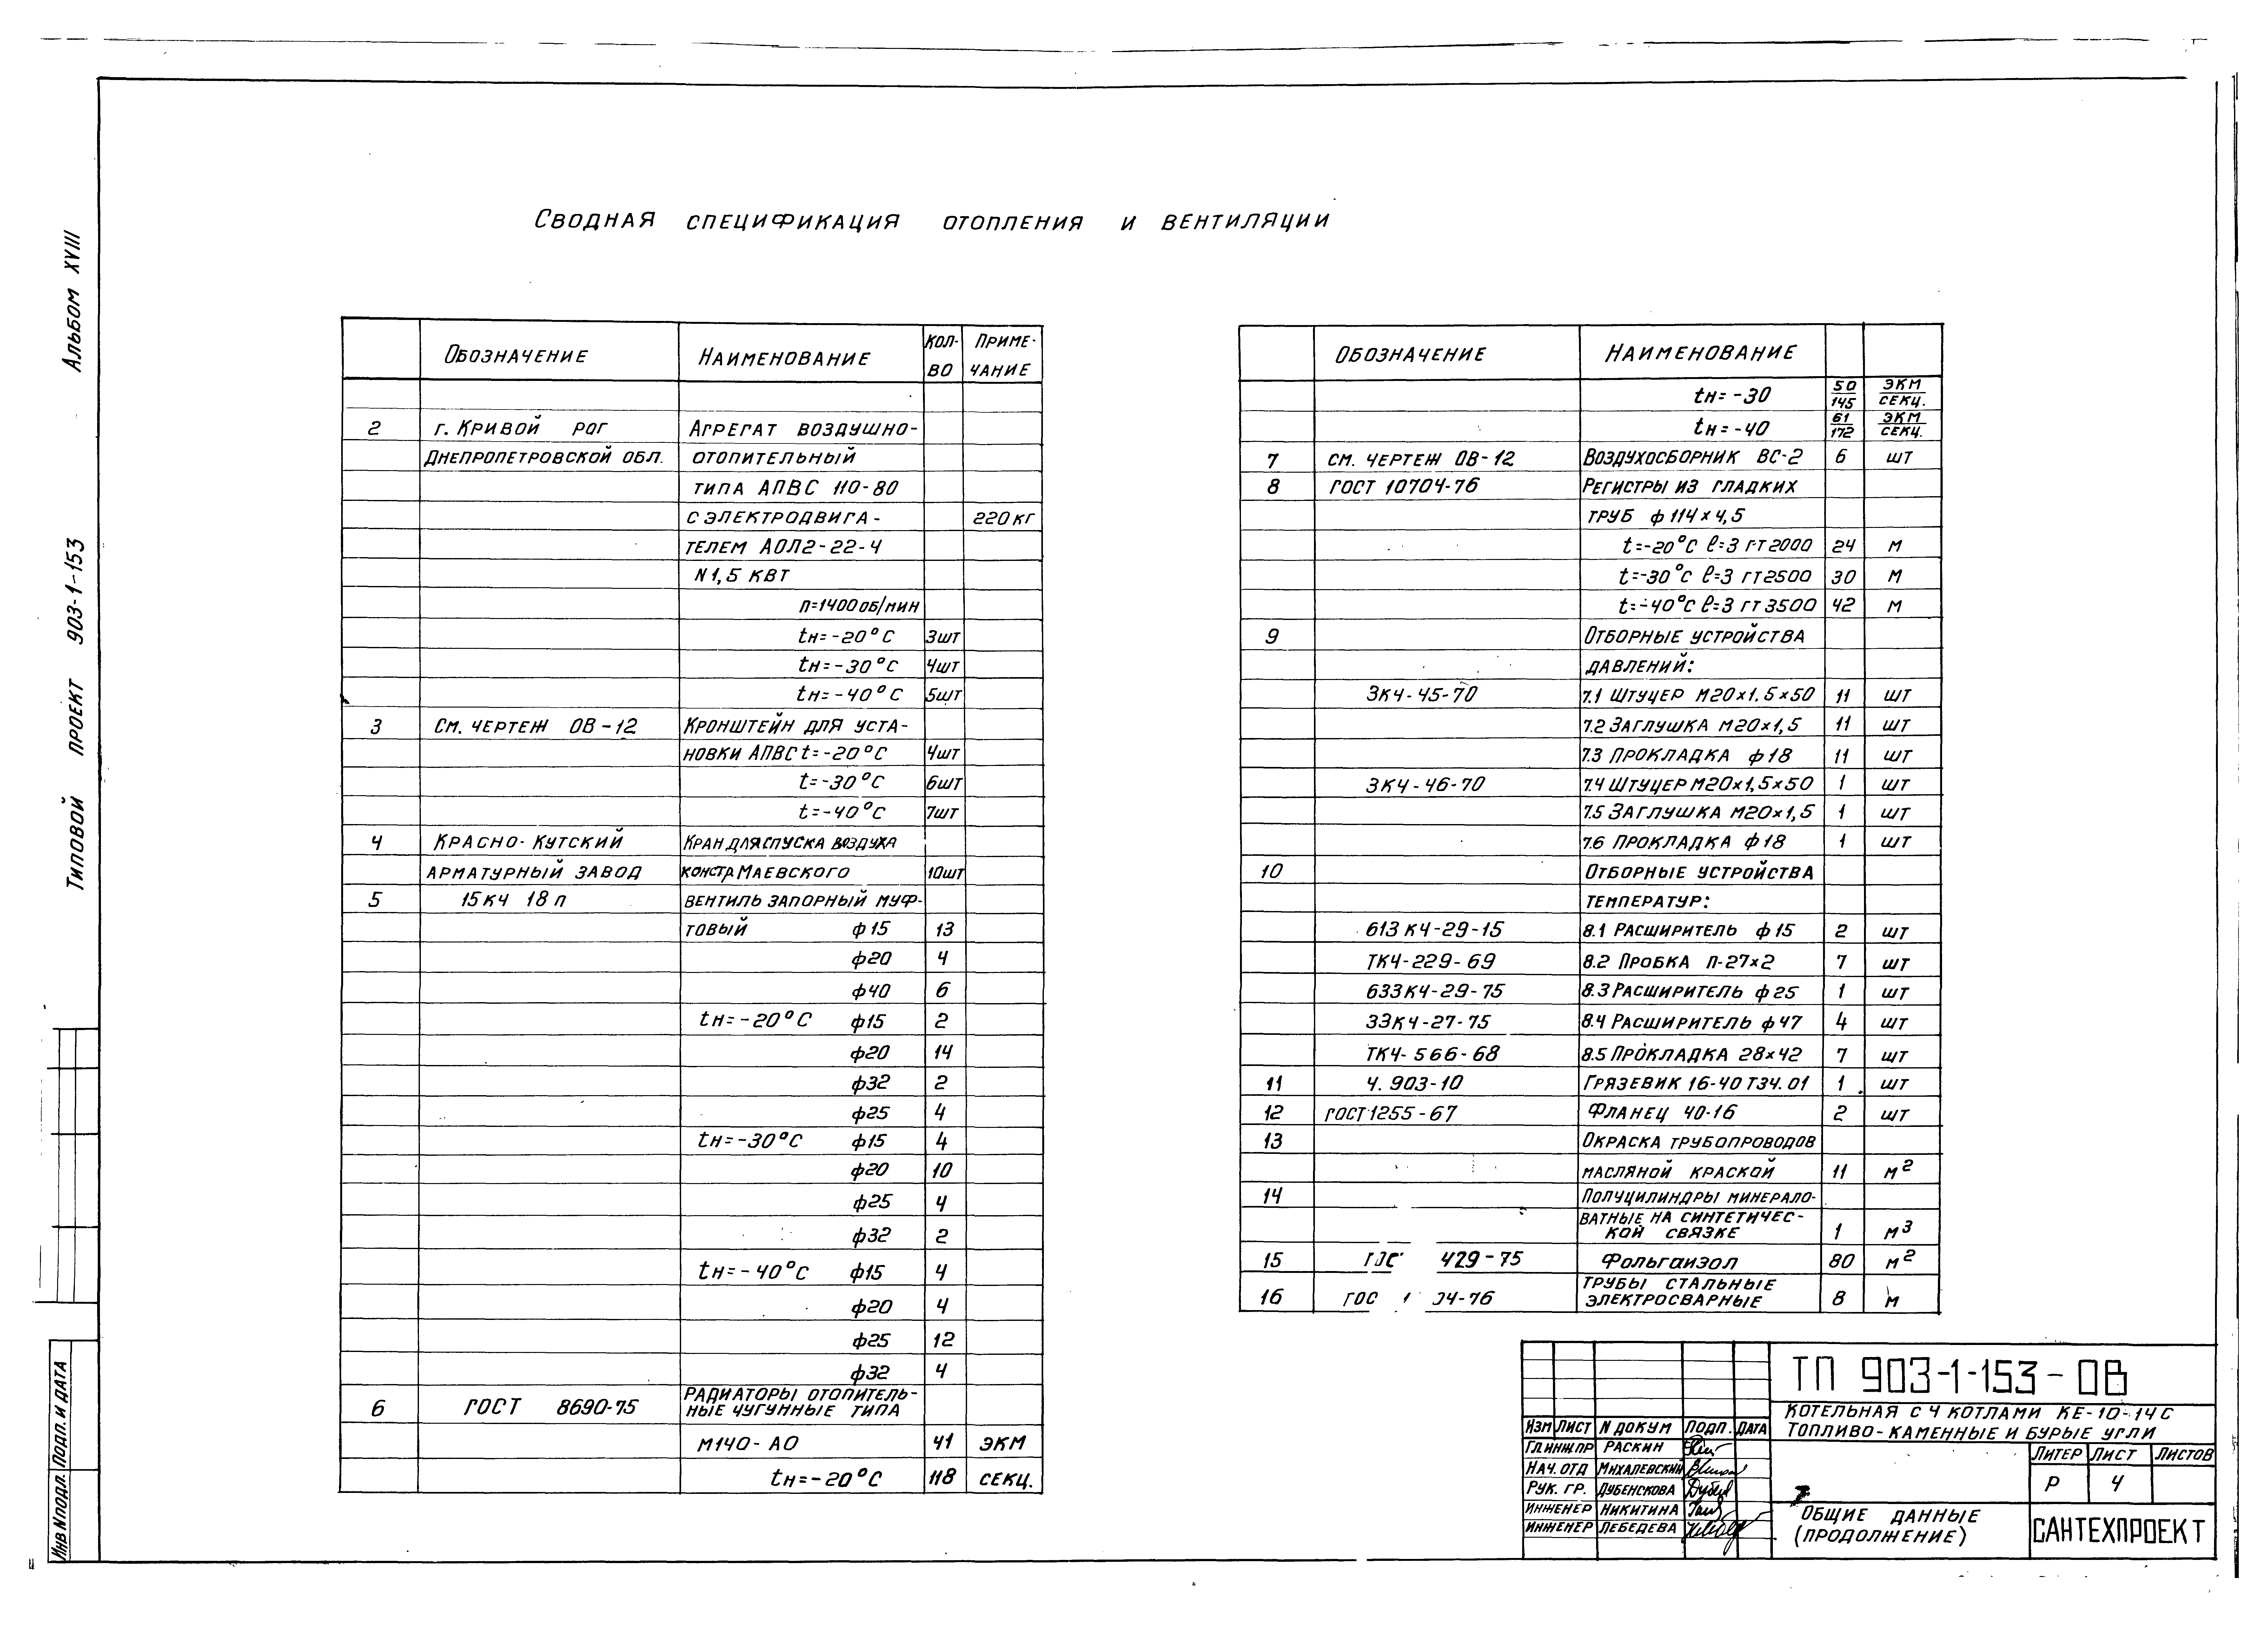 Сводная спецификация отопления и вентиляции
Альбом XVIII
Типовой проект 903-1-153
Инв N подл. Подп. и дата
Обозначение Наименование Кол-во Примечание
2 г. Кривой Рог Агрегат воздушно-
Днепропетровской обл. отопительный
типа АПВС 110-80
с электродвига- 220 кг
телем АОЛ2-22-4
N 1,5 кВт
п=1400 об/мин
tн=-20°С 3шт
tн=-30°С 4шт
tн=-40°С 5шт
3 См. чертеж ОВ-12 Кронштейн для уста-
новки АПВС t=-20°С 4шт
t=-30°С 6шт
t=-40°С 7шт
4 Красно-Кутский Кран для спуска воздуха
арматурный завод констр. Маевского 10шт
5 15кч 18п Вентиль запорный муф-
товый ф15 13
ф20 4
ф40 6
tн=-20°С ф15 2
ф20 14
ф32 2
ф25 4
tн=-30°С ф15 4
ф20 10
ф25 4
ф32 2
tн=-40°С ф15 4
ф20 4
ф25 12
ф32 4
6 ГОСТ 8690-75 Радиаторы отопитель-
ные чугунные типа
М140-АО 41 экм
tн=-20°С 118 секц.
Обозначение Наименование
tн=-30 50/145 экм/секц.
tн=-40 61/172 экм/секц.
7 см. чертеж ОВ-12 Воздухосборник ВС-2 6 шт
8 ГОСТ 10704-76 Регистры из гладких
труб ф114×4,5
t=-20°С ℓ=3 гт2000 24 м
t=-30°С ℓ=3 гт2500 30 м
t=-40°С ℓ=3 гт3500 42 м
9 Отборные устройства
давлений:
ЗК4-45-70 7.1 Штуцер М20×1.5×50 11 шт
7.2 Заглушка М20×1,5 11 шт
7.3 Прокладка ф18 11 шт
ЗК4-46-70 7.4 Штуцер М20×1,5×50 1 шт
7.5 Заглушка М20×1,5 1 шт
7.6 Прокладка ф18 1 шт
10 Отборные устройства
температур:
613К4-29-15 8.1 Расширитель ф15 2 шт
ТК4-229-69 8.2 Пробка П-27×2 7 шт
633К4-29-75 8.3 Расширитель ф25 1 шт
33К4-27-75 8.4 Расширитель ф47 4 шт
ТК4-566-68 8.5 Прокладка 28×42 7 шт
11 4.903-10 Грязевик 16-40 Т34.01 1 шт
12 ГОСТ 1255-67 Фланец 40-16 2 шт
13 Окраска трубопроводов
масляной краской 11 м²
14 Полуцилиндры минерало-
ватные на синтетичес-
кой связке 1 м³
15 429-75 Фольгаизол 80 м²
16 04-76 Трубы стальные
электросварные 8 м
ТП 903-1-153-ОВ
Котельная с 4 котлами КЕ-10-14С
Топливо-каменные и бурые угли
Изм Лист N докум Подп. Дата
Гл.инж.пр Раскин
Нач. отд Михалевский
Рук. гр. Дубенскова
Инженер Никитина
Инженер Лебедева
Литер Лист Листов
Р 4
Общие данные
(продолжение)
САНТЕХПРОЕКТ